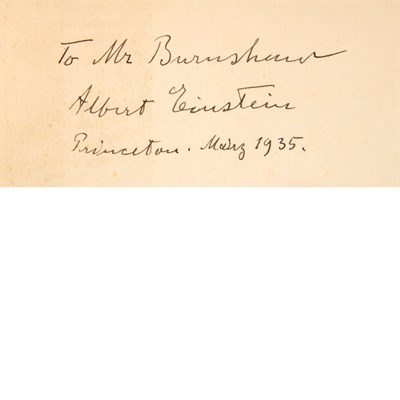 To Mr Burnshaw
Albert Einstein
Princeton. März 1935.